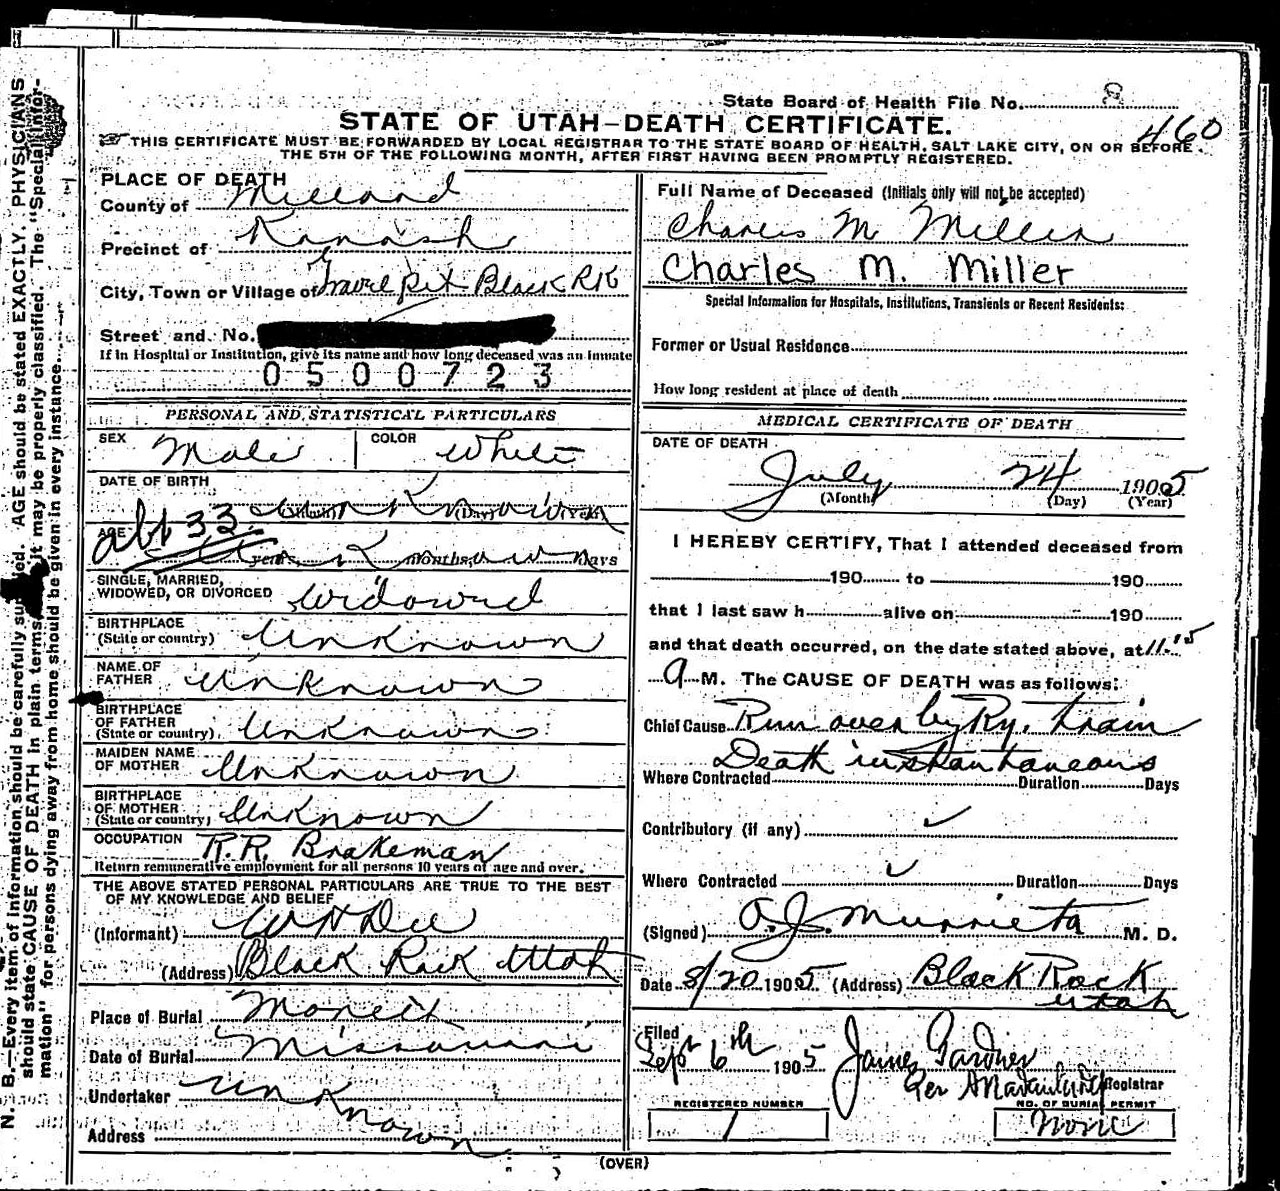 State Board of Health File No. 8
460
STATE OF UTAH—DEATH CERTIFICATE.
THIS CERTIFICATE MUST BE FORWARDED BY LOCAL REGISTRAR TO THE STATE BOARD OF HEALTH, SALT LAKE CITY, ON OR BEFORE
THE 5TH OF THE FOLLOWING MONTH, AFTER FIRST HAVING BEEN PROMPTLY REGISTERED.
PLACE OF DEATH
County of Millard
Precinct of Kanosh
City, Town or Village of Gravel pit Black RK
Street and No.
If in Hospital or Institution, give its name and how long deceased was an inmate
0500723
PERSONAL AND STATISTICAL PARTICULARS
SEX Male COLOR White
DATE OF BIRTH Unknown
(Month) (Day) (Year)
AGE abt 33 Unknown years, months, days
SINGLE, MARRIED,
WIDOWED, OR DIVORCED Widowed
BIRTHPLACE
(State or country) Unknown
NAME OF
FATHER Unknown
BIRTHPLACE
OF FATHER
(State or country) Unknown
MAIDEN NAME
OF MOTHER Unknown
BIRTHPLACE
OF MOTHER
(State or country) Unknown
OCCUPATION R.R. Brakeman
Return remunerative employment for all persons 10 years of age and over.
THE ABOVE STATED PERSONAL PARTICULARS ARE TRUE TO THE BEST
OF MY KNOWLEDGE AND BELIEF
(Informant) W H Dee
(Address) Black Rock Utah
Place of Burial Monett
Date of Burial Missouri
Undertaker Unknown
Address
Full Name of Deceased (Initials only will not be accepted)
Charles M Miller
Charles M. Miller
Special Information for Hospitals, Institutions, Transients or Recent Residents:
Former or Usual Residence
How long resident at place of death
MEDICAL CERTIFICATE OF DEATH
DATE OF DEATH
July 24 1905
(Month) (Day) (Year)
I HEREBY CERTIFY, That I attended deceased from
190 to 190
that I last saw h alive on 190
and that death occurred, on the date stated above, at 11.15
A M. The CAUSE OF DEATH was as follows:
Chief Cause Run over by Ry. train
Death instantaneous
Where Contracted Duration Days
Contributory (if any) ✓
Where Contracted ✓ Duration Days
(Signed) O. J. Murrieta M. D.
Date 8/20 1905 (Address) Black Rock
Utah
Filed
Sept 6th 1905 James Gardner
Per Registrar
REGISTERED NUMBER
1
NO. OF BURIAL PERMIT
None
(OVER)
N. B.—Every item of information should be carefully supplied. AGE should be stated EXACTLY. PHYSICIANS
should state CAUSE OF DEATH in plain terms, it may be properly classified. The "Special Infor-
mation" for persons dying away from home should be given in every instance.